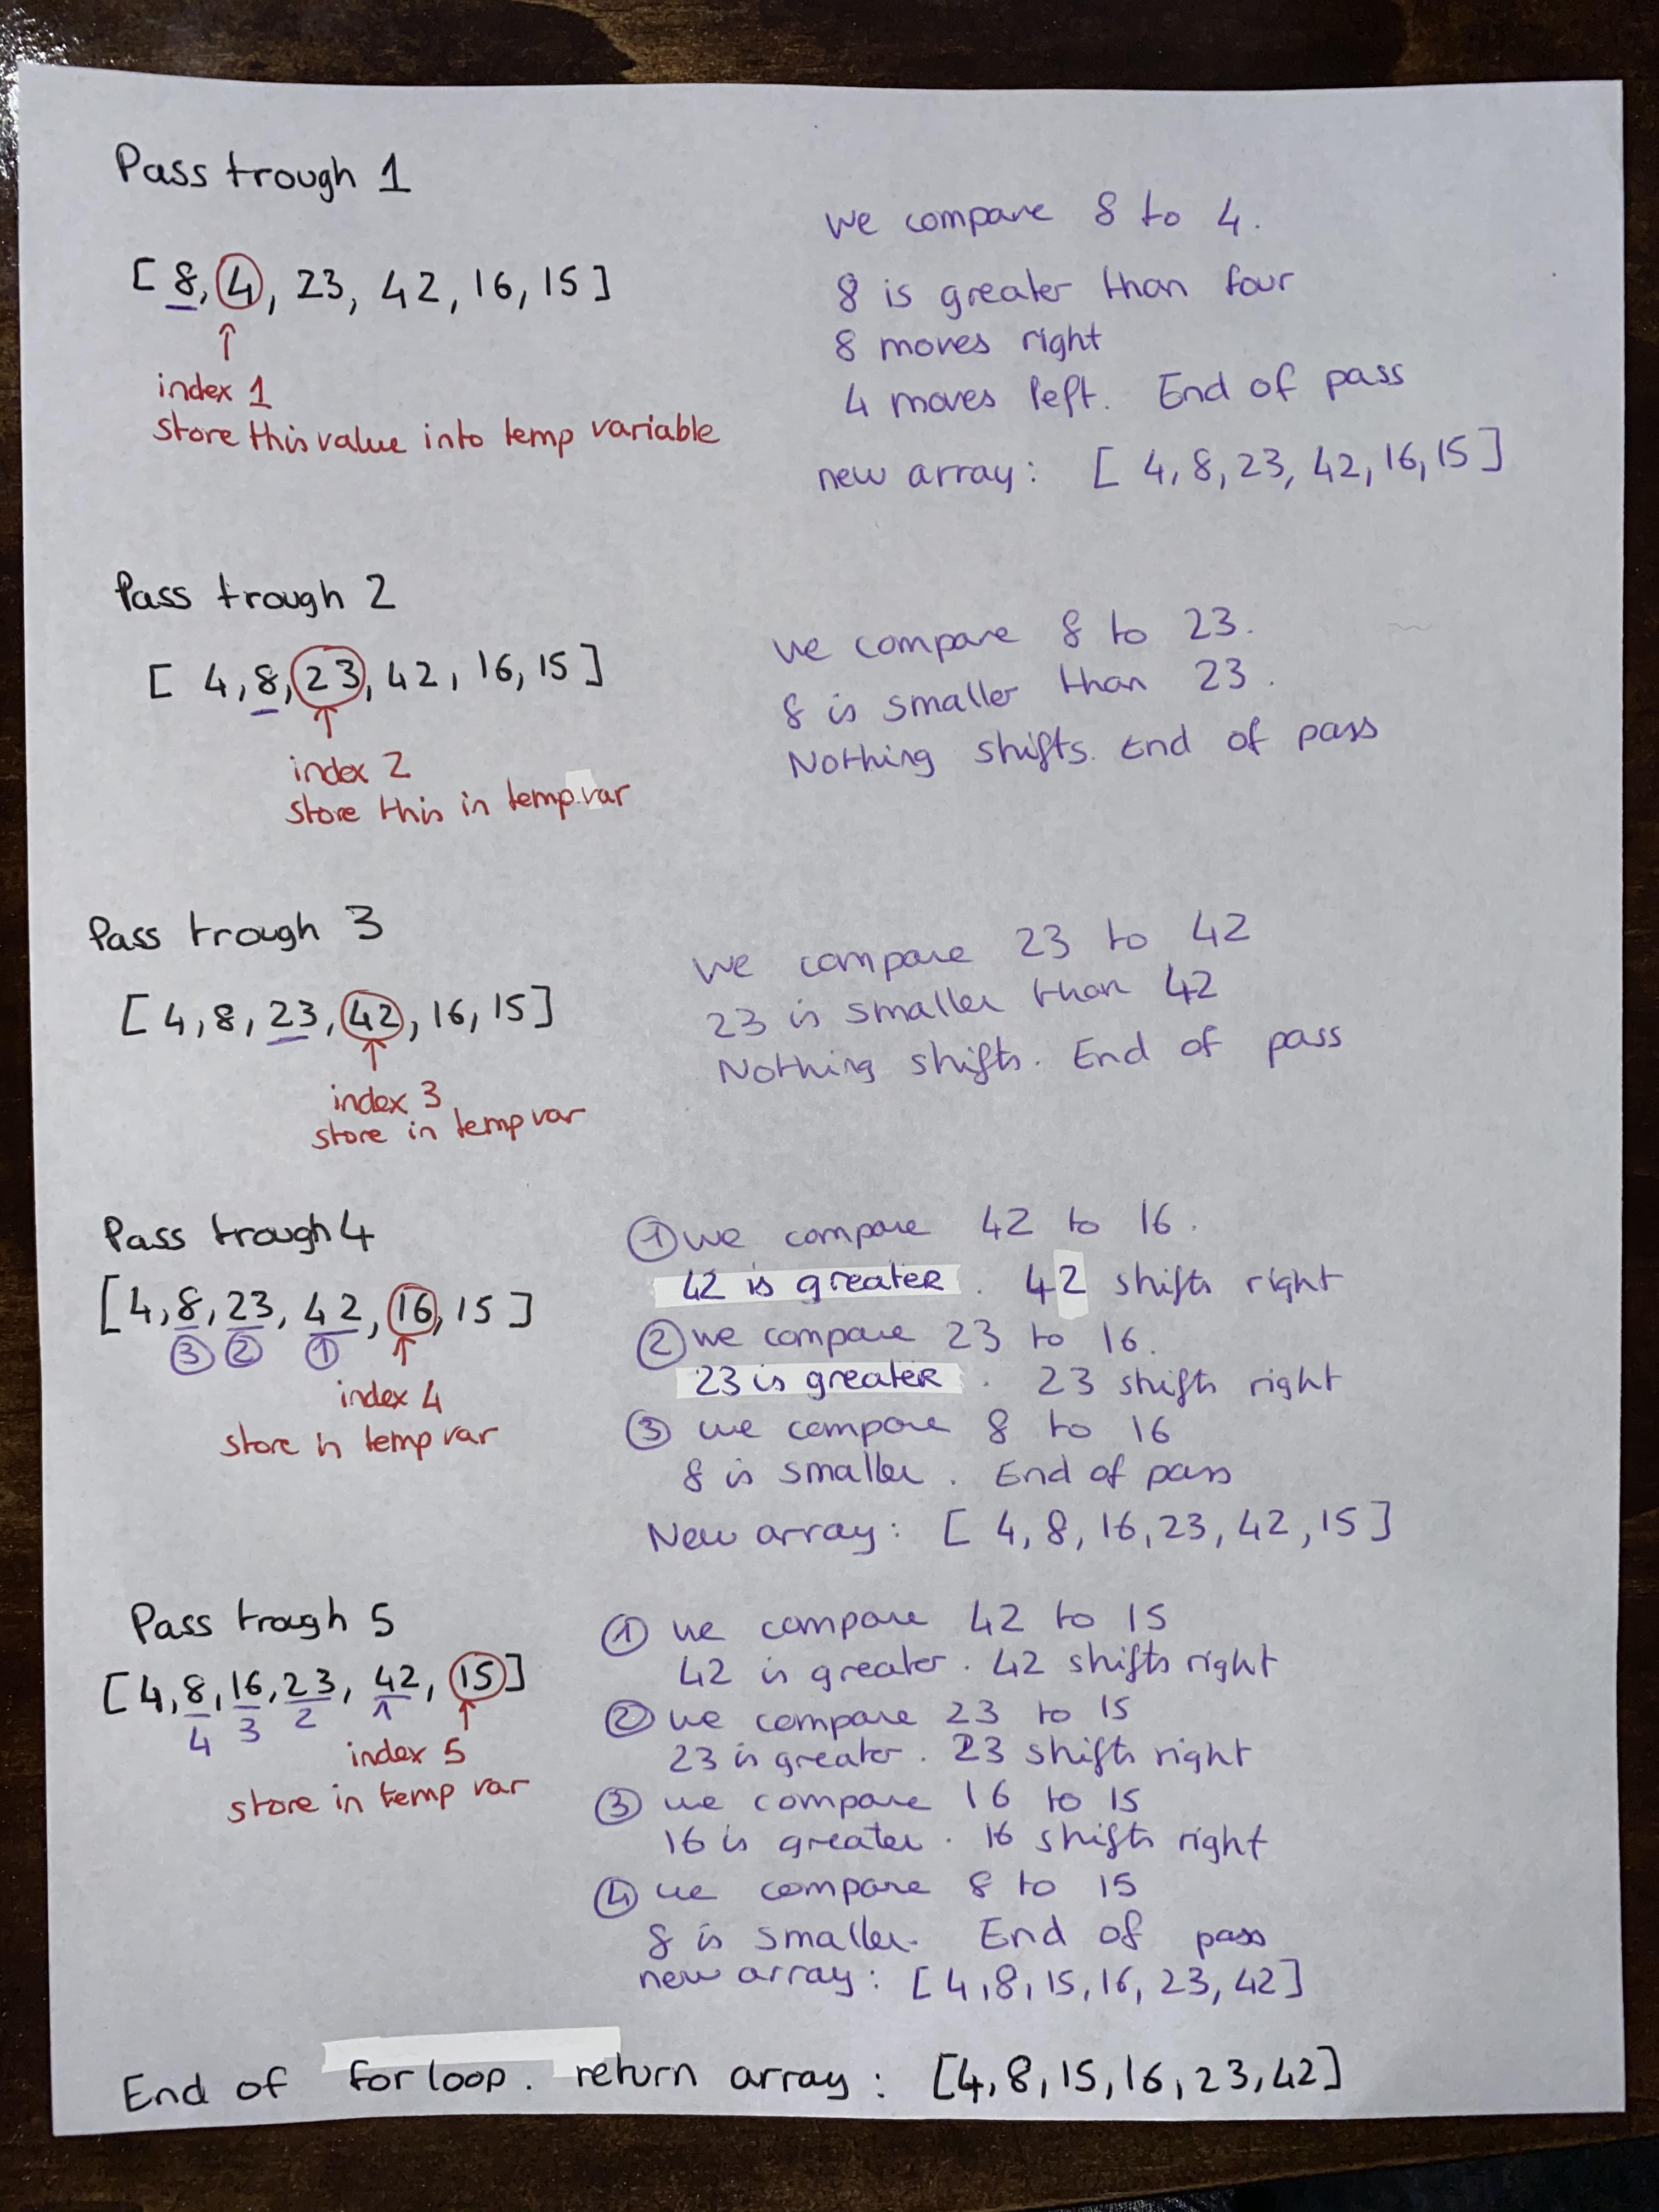 Pass trough 1
[ 8, 4, 23, 42, 16, 15 ]
index 1
store this value into temp variable
we compare 8 to 4.
8 is greater than four
8 moves right
4 moves left. End of pass
new array: [ 4, 8, 23, 42, 16, 15 ]
Pass trough 2
[ 4, 8, 23, 42, 16, 15 ]
index 2
store this in temp var
we compare 8 to 23.
8 is smaller than 23.
Nothing shifts. End of pass
Pass trough 3
[ 4, 8, 23, 42, 16, 15 ]
index 3
store in temp var
we compare 23 to 42
23 is smaller than 42
Nothing shifts. End of pass
Pass trough 4
[ 4, 8, 23, 42, 16, 15 ]
3 2 1
index 4
store in temp var
1 we compare 42 to 16.
42 is greater. 42 shifts right
2 we compare 23 to 16.
23 is greater. 23 shifts right
3 we compare 8 to 16
8 is smaller. End of pass
New array: [ 4, 8, 16, 23, 42, 15 ]
Pass trough 5
[ 4, 8, 16, 23, 42, 15 ]
4 3 2 1
index 5
store in temp var
1 we compare 42 to 15
42 is greater. 42 shifts right
2 we compare 23 to 15
23 is greater. 23 shifts right
3 we compare 16 to 15
16 is greater. 16 shifts right
4 we compare 8 to 15
8 is smaller. End of pass
new array: [ 4, 8, 15, 16, 23, 42 ]
End of for loop. return array: [4, 8, 15, 16, 23, 42]